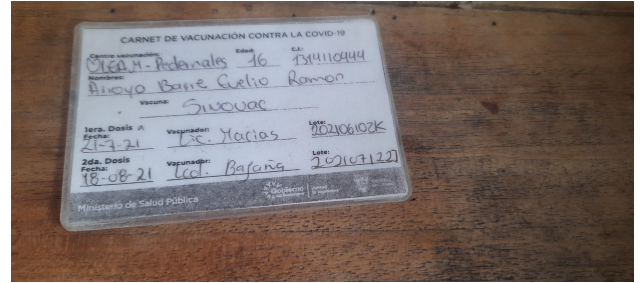 CARNET DE VACUNACIÓN CONTRA LA COVID-19
Centro vacunación: ULEAM-Pedernales Edad: 16 C.I.: 1314110444
Nombres: Arroyo Barre Evelio Ramon
Vacuna: Sinovac
1era. Dosis
Fecha: 21-7-21 Vacunador: Lic. Macias Lote: 202106102K
2da. Dosis
Fecha: 18-08-21 Vacunador: Lcd. Lote:
Ministerio de Salud Pública Gobierno